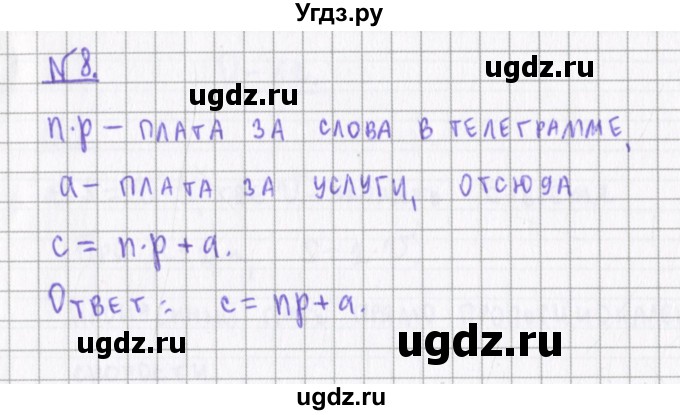 Угдз.ру
N8.
ugdz.ru ugdz.ru
n·p – ПЛАТА ЗА СЛОВА В ТЕЛЕГРАММЕ,
a – ПЛАТА ЗА УСЛУГИ, ОТСЮДА
ugdz.ru
c = n·p + a.
ОТВЕТ: c = np + a.
ugdz.ru ugdz.ru
ugdz.ru